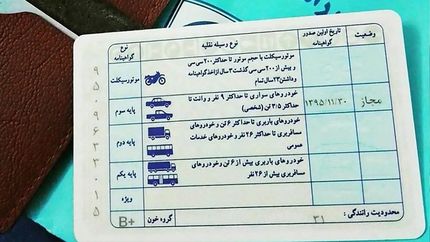 وضعیت
تاریخ اولین صدور گواهینامه
نوع وسیله نقلیه
نوع گواهینامه
موتورسیکلت با حجم موتور تا حداکثر ۲۰۰ سی سی
و بیش از ۲۰۰ سی سی گذشت ۳ سال از اخذ گواهینامه
و داشتن ۲۳ سال تمام
موتورسیکلت
مجاز
۱۳۹۵/۱۱/۳۰
خودروهای سواری تا حداکثر ۹ نفر و وانت تا
حداکثر ۳/۵ تن (شخصی)
پایه سوم
خودروهای باربری تا حداکثر ۶ تن و خودروهای
مسافربری تا حداکثر ۲۶ نفر و خودروهای خدمات
عمومی
پایه دوم
خودروهای باربری بیش از ۶ تن و خودروهای
مسافربری بیش از ۲۶ نفر
پایه یکم
ویژه
محدودیت رانندگی : ۳۱
گروه خون : B+